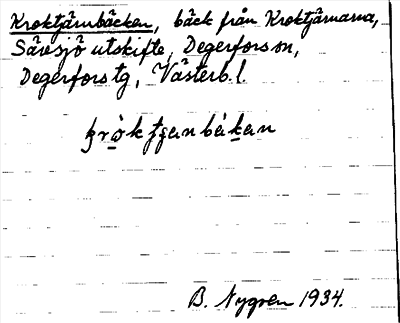 Kroktjärnbäcken, bäck från Kroktjärnarna,
Säresjö utskifte, Degerfors sn,
Degerfors tg, Västerb. l.
B. Nygren 1934.